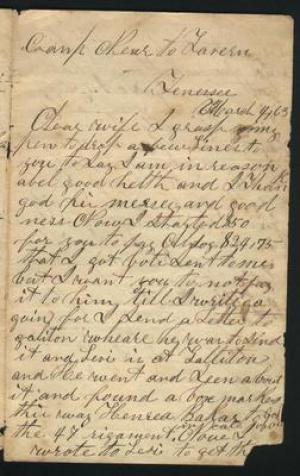 Camp Near to Tavern
Tenersee
March 9, 63
Dear wife I grasp my
pen to drop a few lines to
you to Say I am in reason
abel good helth and I thank
god his mersee and good
ness Now I started $50
for you to pay $24.75
that I got Sent to me
but I want you to not pay
it to him till I write a
gain for I Send a Letter to
wheare he was to Send
it and Levi is at
and he went and Seen about
it and found a box marked
this way
the 47 rigament Now I
wrote to Levi to get the